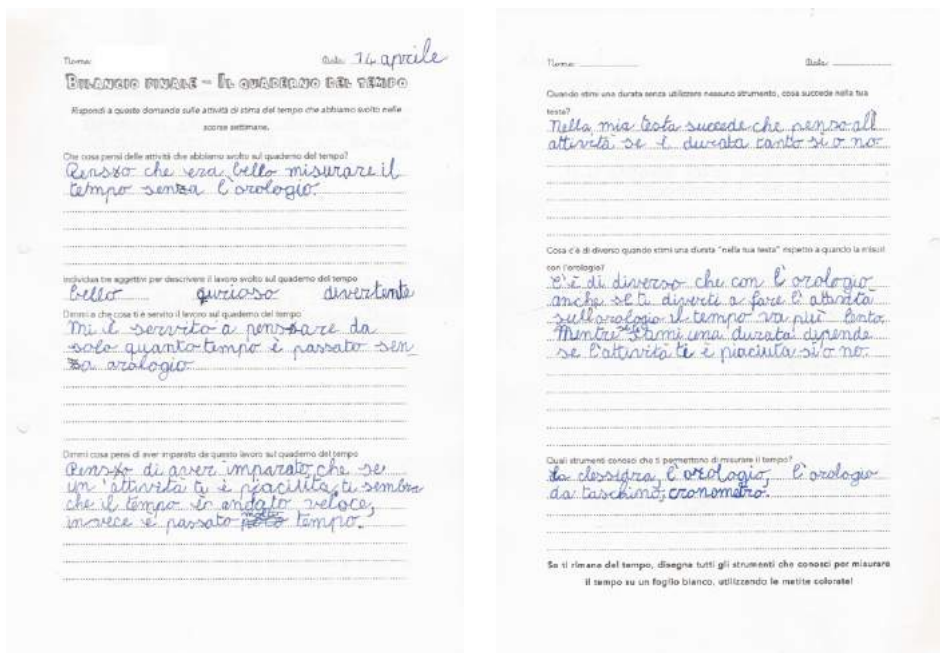 Nome: Data: 14 aprile
BILANCIO FINALE – IL QUADERNO DEL TEMPO
Rispondi a queste domande sulle attività di stima del tempo che abbiamo svolto nelle
scorse settimane.
Che cosa pensi delle attività che abbiamo svolto sul quaderno del tempo?
Penso che era bello misurare il
tempo senza l'orologio.
Individua tre aggettivi per descrivere il lavoro svolto sul quaderno del tempo
bello qurioso divertente
Dimmi a che cosa ti è servito il lavoro sul quaderno del tempo
Mi è servito a pensare da
solo quanto tempo è passato sen
za orologio.
Dimmi cosa pensi di aver imparato da questo lavoro sul quaderno del tempo
Penso di aver imparato, che se
un'attività ti è piaciuta, ti sembra
che il tempo è andato veloce,
invece è passato molto tempo.
Nome: Data:
Quando stimi una durata senza utilizzare nessuno strumento, cosa succede nella tua
testa?
Nella mia testa succede che penso all
attività se è durata tanto si o no.
Cosa c'è di diverso quando stimi una durata "nella tua testa" rispetto a quando la misuri
con l'orologio?
C'è di diverso che con l'orologio
anche se ti diverti a fare l'attività
sull'orologio il tempo va più lento.
Mentre stimi una durata dipende
se l'attività te è piaciuta si o no.
Quali strumenti conosci che ti permettono di misurare il tempo?
La clessidra, l'orologio, l'orologio
da taschino, cronometro.
Se ti rimane del tempo, disegna tutti gli strumenti che conosci per misurare
il tempo su un foglio bianco, utilizzando le matite colorate!